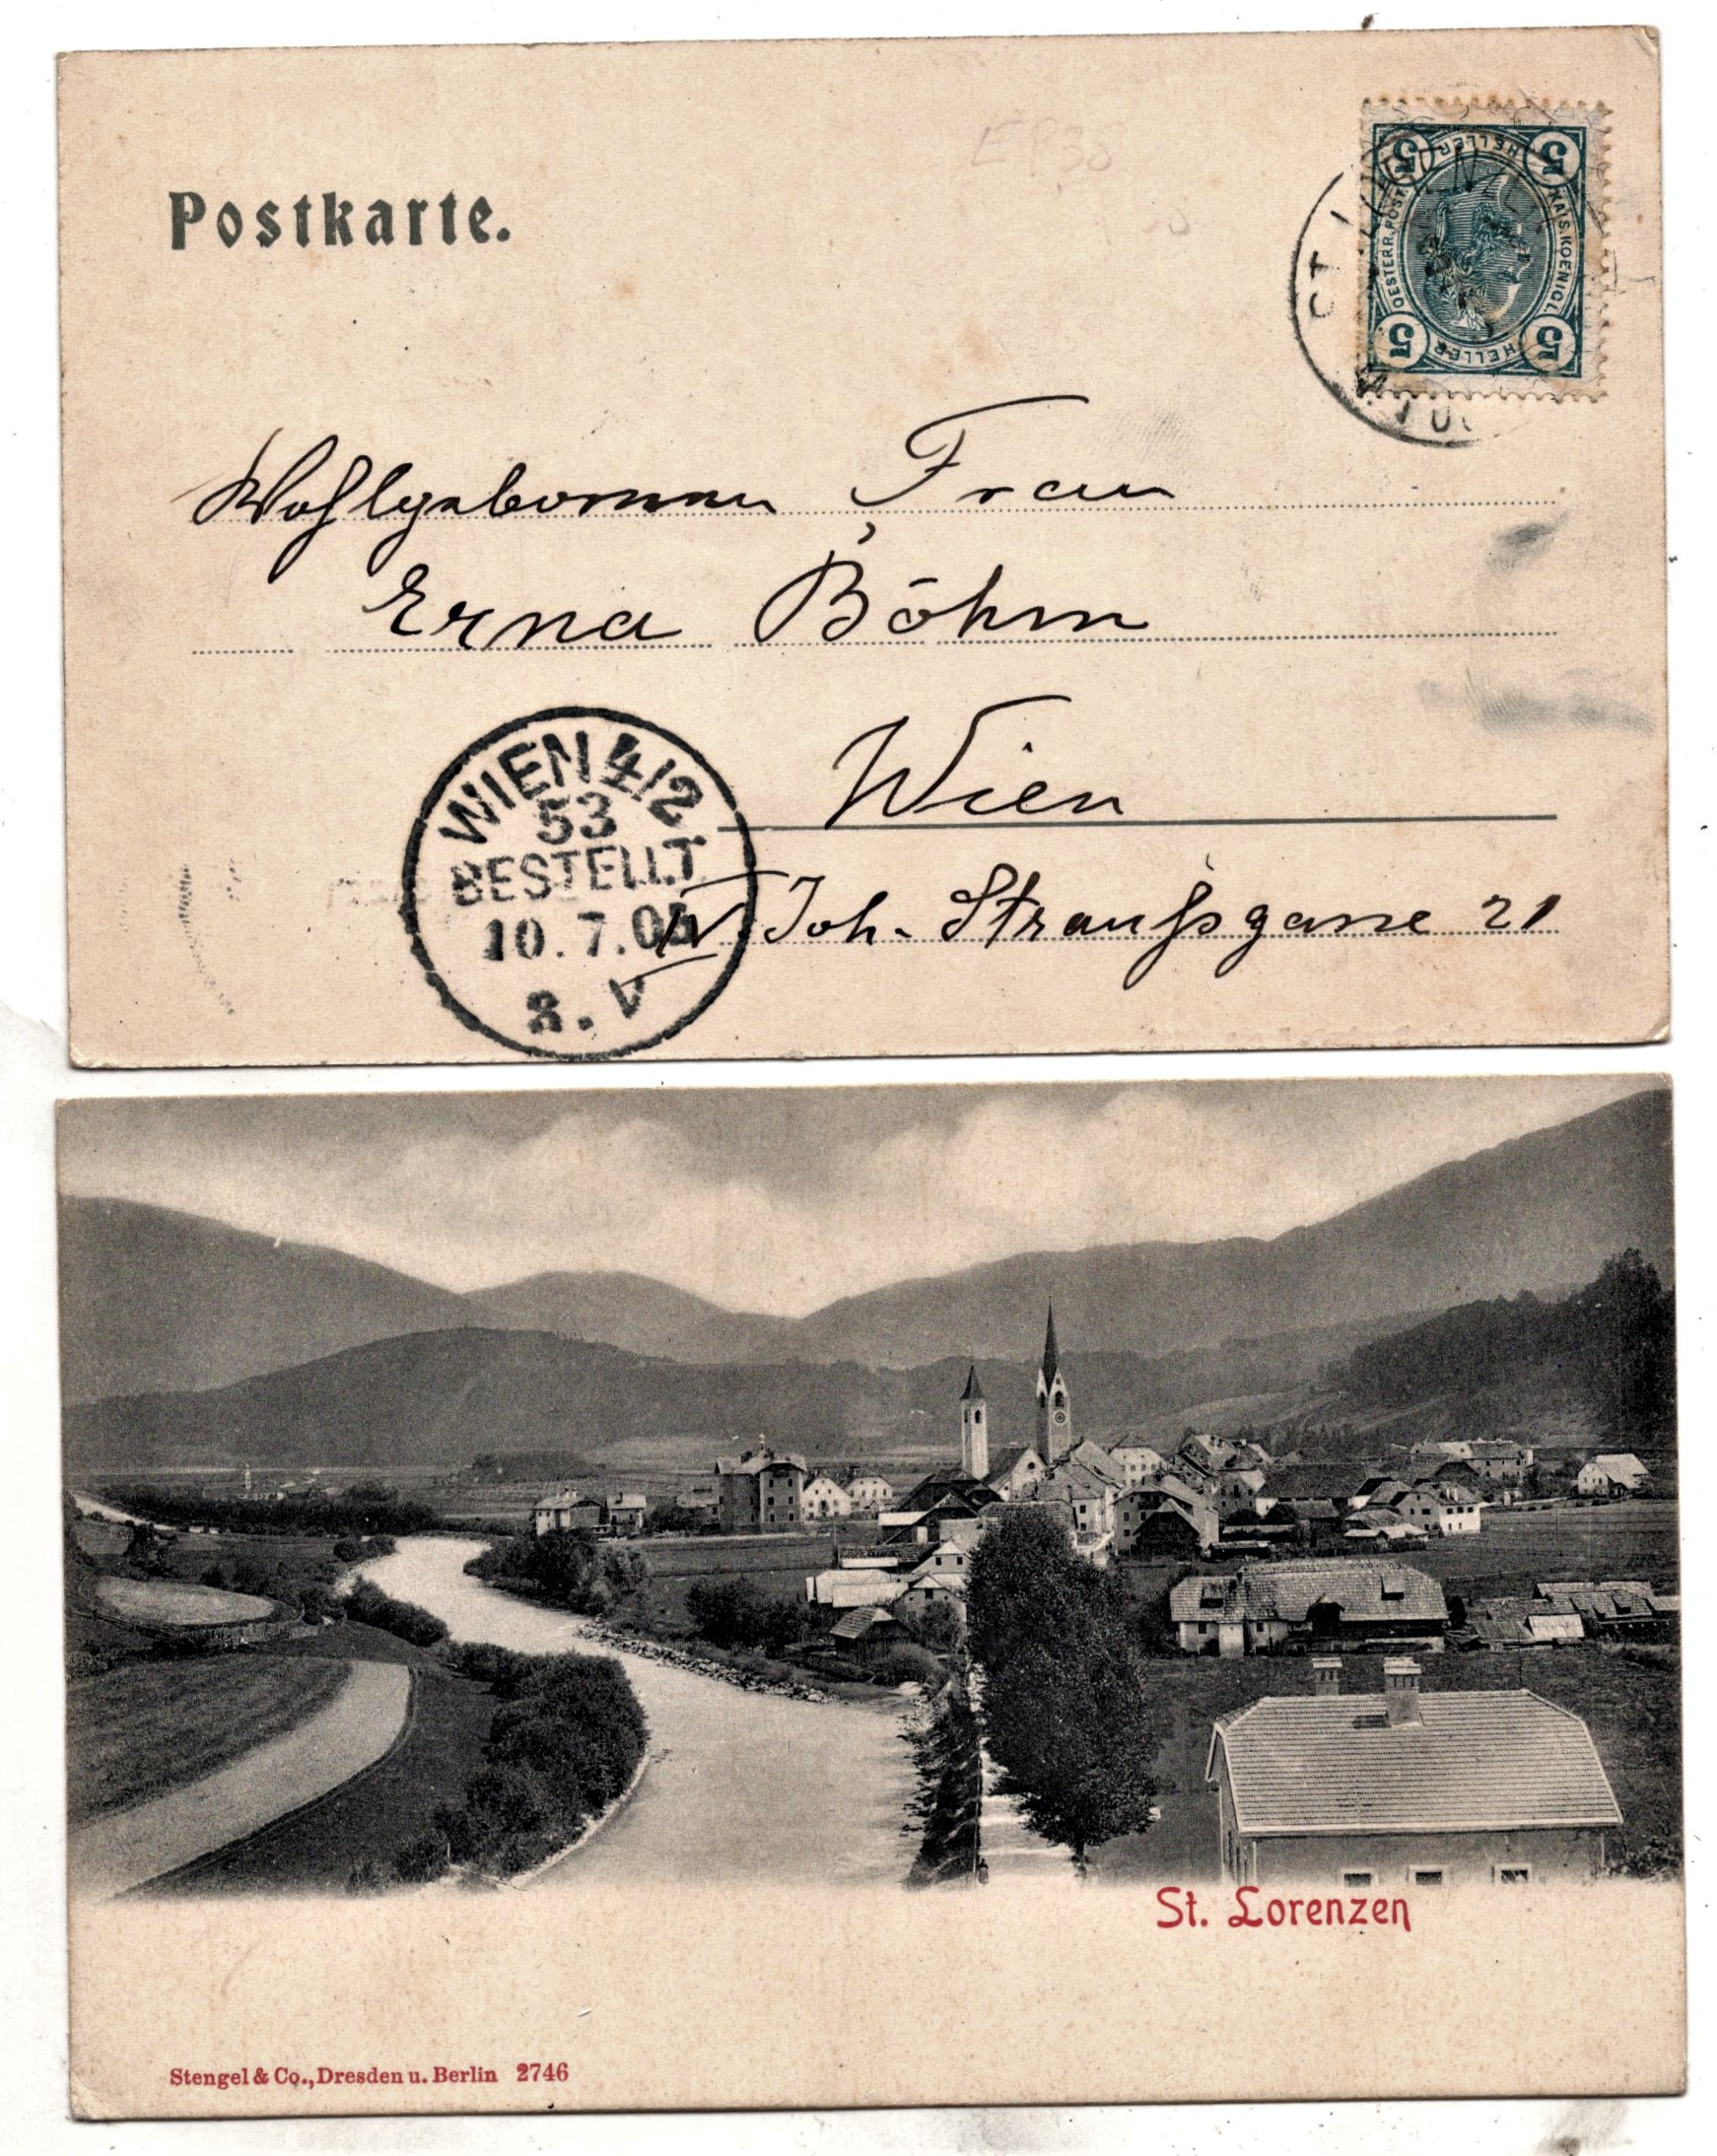 Postkarte.
5 HELLER 5
OESTERR. POST KAIS. KOENIGL.
5 HELLER 5
ST. LORENZEN
Wohlgeborenen Frau
Erna Böhm
Wien
IV. Joh. Straußgasse 21
WIEN 4/2
53
BESTELLT
10.7.05
8.V
St. Lorenzen
Stengel & Co., Dresden u. Berlin 2746